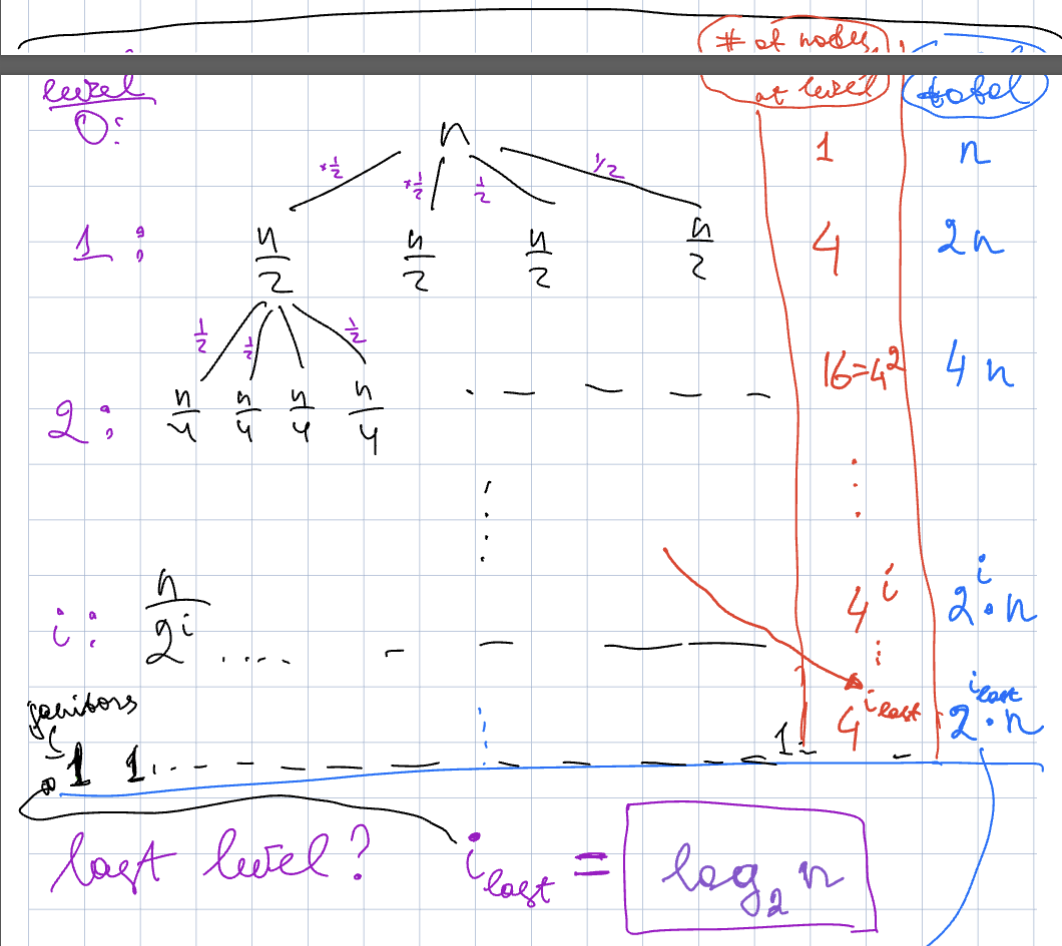 # of nodes
level at level total
0: n 1 n
×1/2 ×1/2 1/2 1/2
1: n/2 n/2 n/2 n/2 4 2n
1/2 1/2 1/2
2: n/4 n/4 n/4 n/4 · – – – – 16=4² 4n
i: n/2^i .... 4^i 2^i·n
janitors
1 1... 1 4^i_last 2^i_last·n
last level? i_last = log₂ n